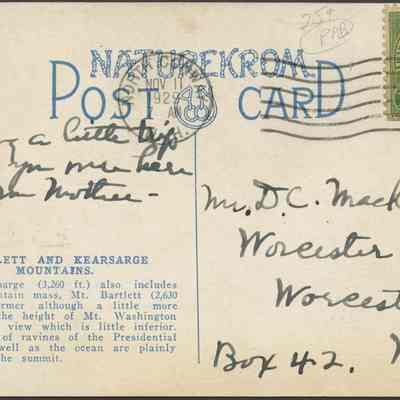 25¢
PAB
NATUREKROM
POST CARD
NOV 11
1929
AM
a little trip
you once here
Mother -
Mr. D.C. Mack
Worcester
Worcest
Box 42.
LETT AND KEARSARGE
MOUNTAINS.
arge (3,260 ft.) also includes
tain mass, Mt. Bartlett (2,630
ormer although a little more
the height of Mt. Washington
view which is little inferior.
of ravines of the Presidential
well as the ocean are plainly
the summit.